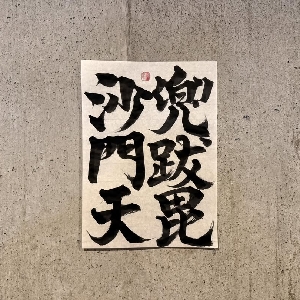 兜跋毘
沙門天